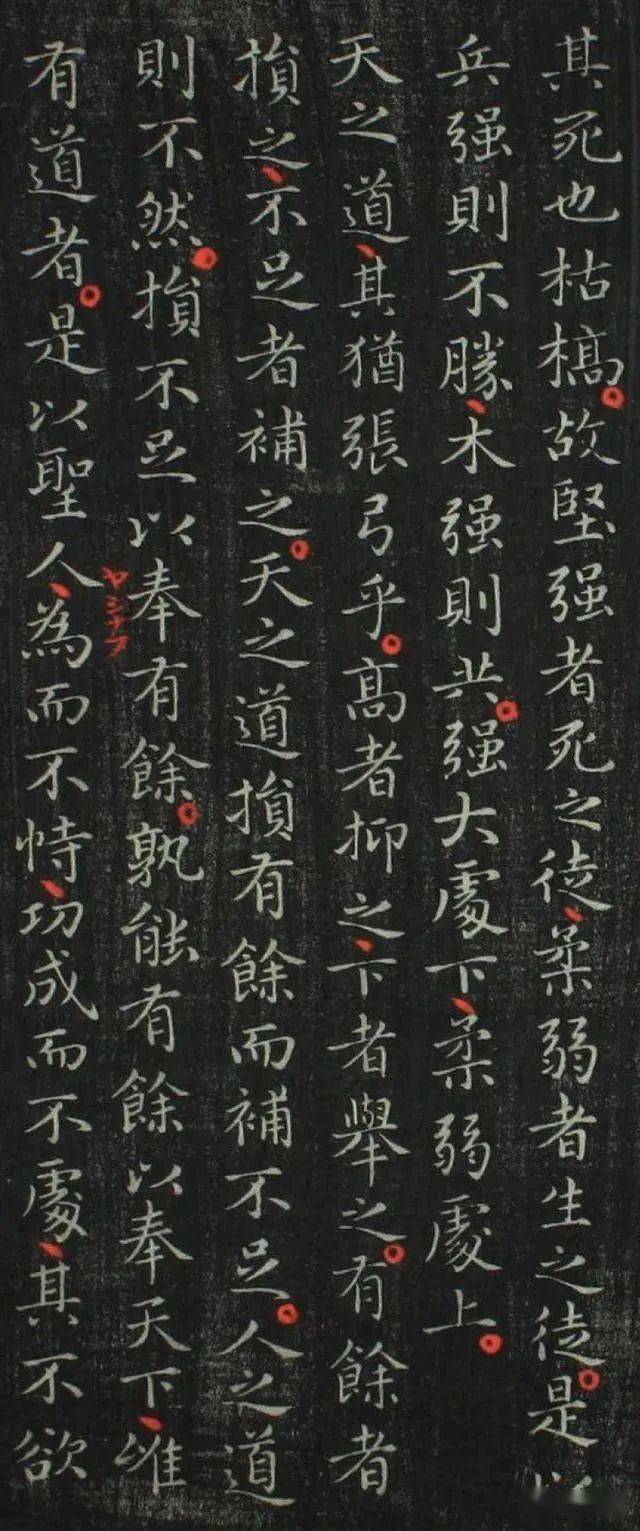 其死也枯槁。故堅强者死之徒、柔弱者生之徒。是以
兵强則不勝、木强則共。强大處下、柔弱處上。
天之道、其猶張弓乎。髙者抑之、下者舉之。有餘者
損之、不足者補之。天之道損有餘而補不足。人之道
則不然。損不足以奉有餘。孰能有餘以奉天下、唯
有道者。是以聖人、為而不恃、功成而不處、其不欲